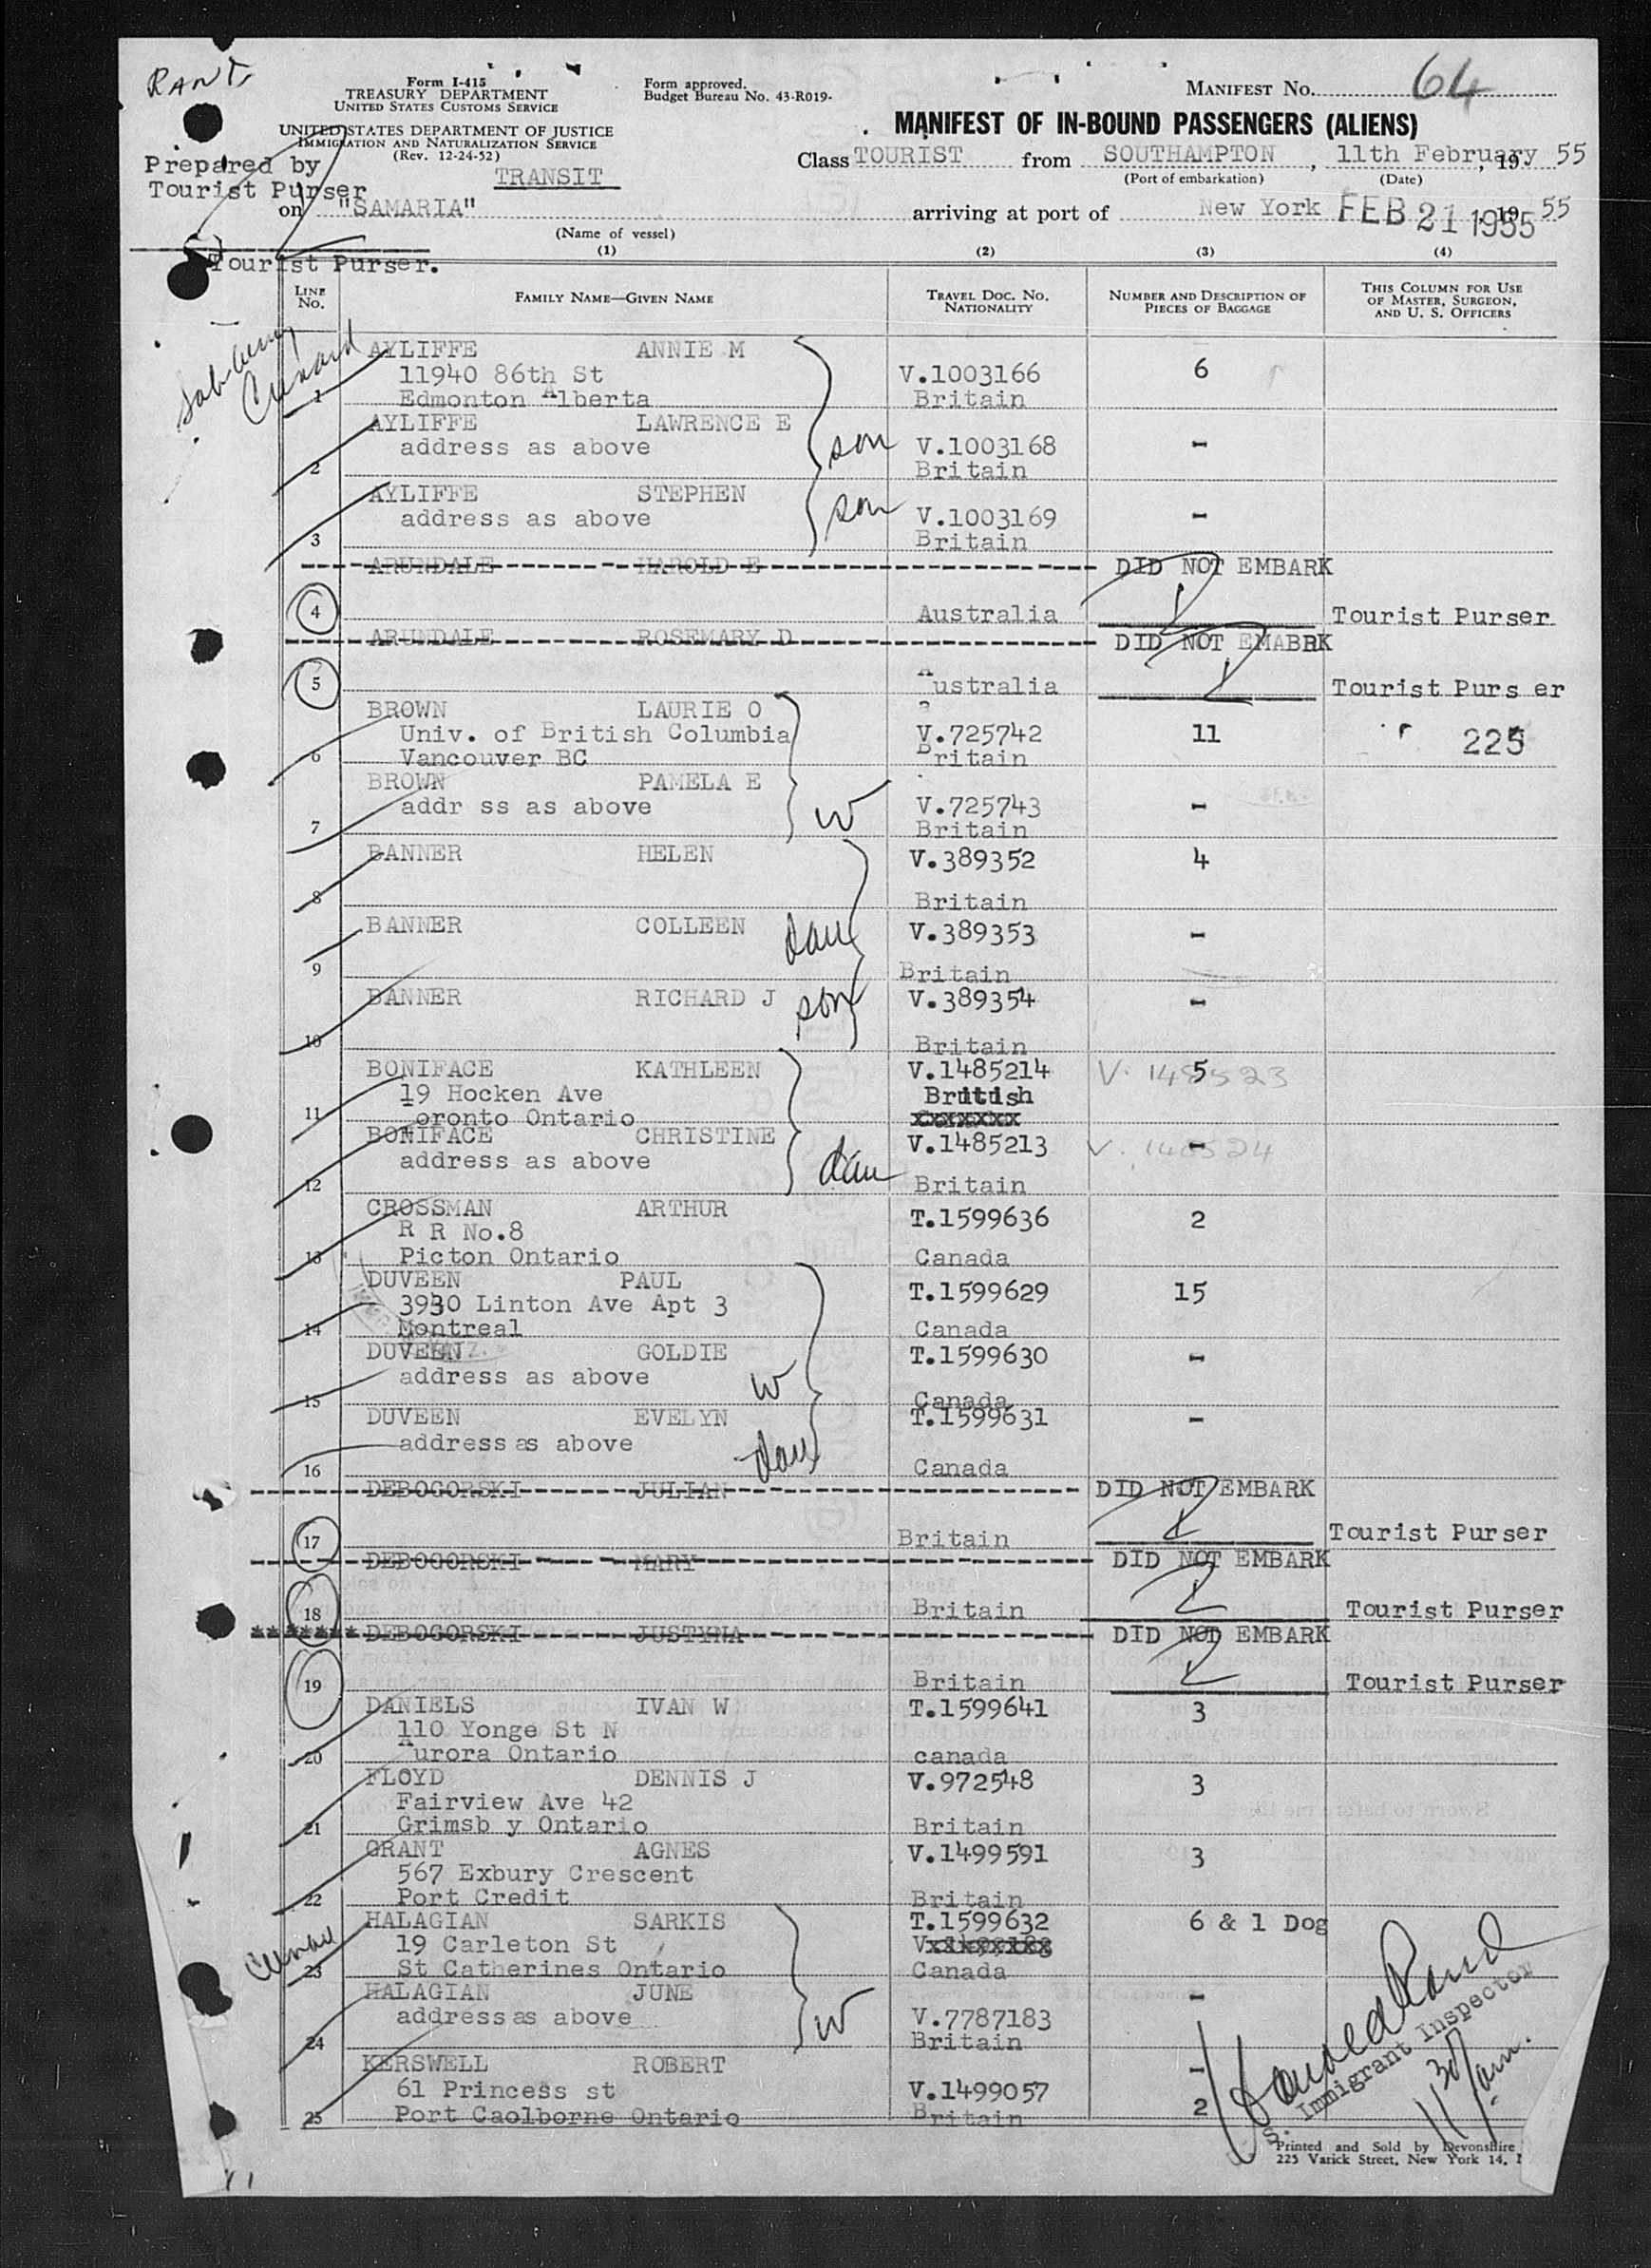 RANT.
Form I-415
TREASURY DEPARTMENT
UNITED STATES CUSTOMS SERVICE
Form approved.
Budget Bureau No. 43-R019-
MANIFEST No. 64
UNITED STATES DEPARTMENT OF JUSTICE
IMMIGRATION AND NATURALIZATION SERVICE
(Rev. 12-24-52)
MANIFEST OF IN-BOUND PASSENGERS (ALIENS)
Prepared by
Tourist Purser
TRANSIT
Class TOURIST from SOUTHAMPTON, 11th February, 19 55
(Port of embarkation) (Date)
on "SAMARIA" arriving at port of New York FEB 21 1955, 19 55
(Name of vessel)
(1) (2) (3) (4)
Tourist Purser.
LINE No. FAMILY NAME—GIVEN NAME TRAVEL DOC. No. NATIONALITY NUMBER AND DESCRIPTION OF PIECES OF BAGGAGE THIS COLUMN FOR USE OF MASTER, SURGEON, AND U. S. OFFICERS
Cunard
AYLIFFE ANNIE M
11940 86th St V.1003166 6
1 Edmonton Alberta Britain
AYLIFFE LAWRENCE E
address as above son V.1003168 -
2 Britain
AYLIFFE STEPHEN
address as above son V.1003169 -
3 Britain
ARUNDALE HAROLD E DID NOT EMBARK
4 Australia Tourist Purser
ARUNDALE ROSEMARY D DID NOT EMABRK
5 Australia Tourist Purs er
BROWN LAURIE O
Univ. of British Columbia V.725742 11 225
6 Vancouver BC Britain
BROWN PAMELA E
addr ss as above W V.725743 -
7 Britain
BANNER HELEN V.389352 4
8 Britain
BANNER COLLEEN dau V.389353 -
9 Britain
BANNER RICHARD J son V.389354 -
10 Britain
BONIFACE KATHLEEN V.1485214 5
19 Hocken Ave British
11 oronto Ontario xxxxxxx
BONIFACE CHRISTINE V.1485213 -
address as above dau
12 Britain
CROSSMAN ARTHUR T.1599636 2
R R No.8
13 Picton Ontario Canada
DUVEEN PAUL T.1599629 15
3930 Linton Ave Apt 3
14 Montreal Canada
DUVEEN GOLDIE T.1599630 -
address as above W
15 Canada
DUVEEN EVELYN T.1599631 -
address as above dau
16 Canada
DEBOGORSKI JULIAN DID NOT EMBARK
17 Britain Tourist Purser
DEBOGORSKI MARY DID NOT EMBARK
18 Britain Tourist Purser
******* DEBOGORSKI JUSTYNA DID NOT EMBARK
19 Britain Tourist Purser
DANIELS IVAN W T.1599641 3
110 Yonge St N
20 Aurora Ontario canada
FLOYD DENNIS J V.972548 3
Fairview Ave 42
21 Grimsb y Ontario Britain
GRANT AGNES V.1499591 3
567 Exbury Crescent
22 Port Credit Britain
HALAGIAN SARKIS T.1599632 6 & 1 Dog
19 Carleton St
Cunard
23 St Catherines Ontario Canada
HALAGIAN JUNE -
address as above W V.7787183
24 Britain
KERSWELL ROBERT -
61 Princess st V.1499057
25 Port Caolborne Ontario Britain 2
Immigrant Inspector
11 30/am.
Printed and Sold by Devonshire
225 Varick Street, New York 14,